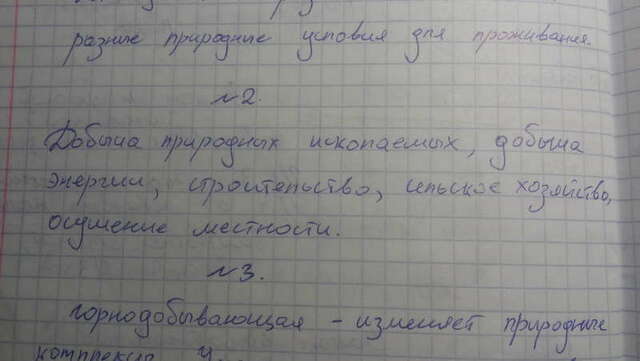 разные природные условия для проживания.
№2.
Добыча природных ископаемых, добыча
энергии, строительство, сельское хозяйство,
осушение местности.
№3.
горнодобывающая - изменяет природные